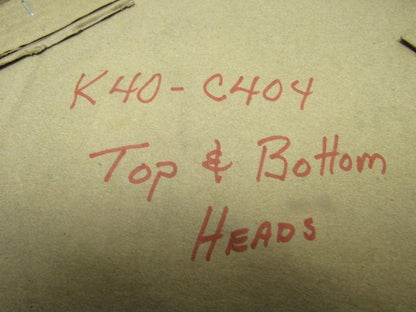 K40-C404
Top & Bottom
HEADS